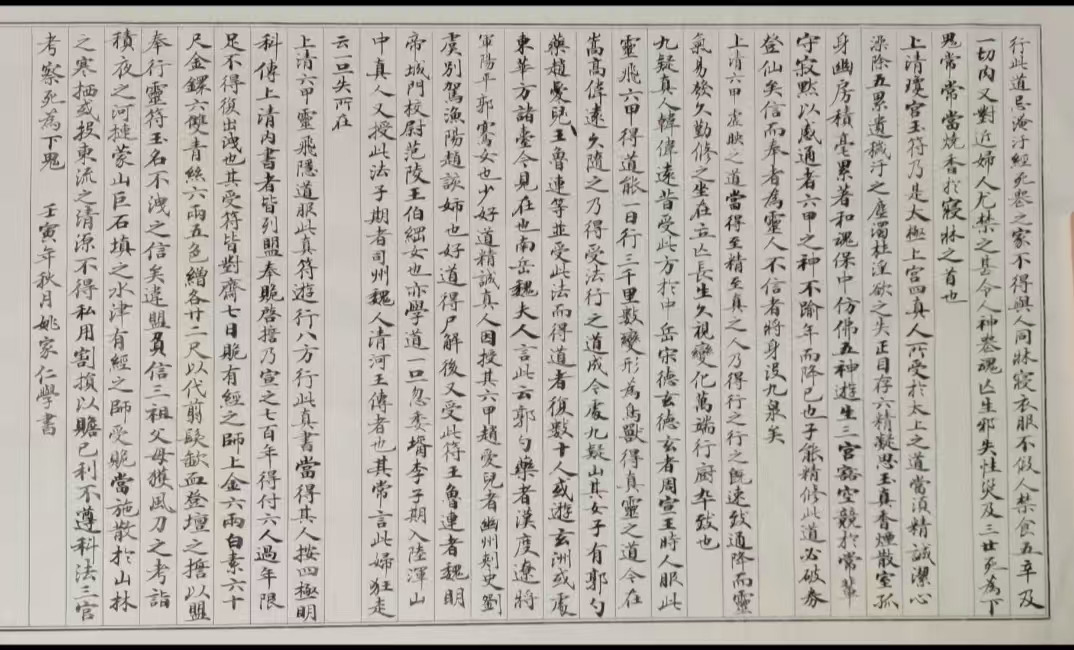 行此道忌淹汙經死喪之家不得與人同牀寢衣服不假人禁食五辛及
一切肉又對近婦人尤禁之甚令人神喪魂亡生邪失性災及三世死為下
鬼常常當燒香於寢牀之首也
上清瓊宮玉符乃是太極上宮四真人所受於太上之道當須精誠潔心
澡除五累遺穢汙之塵濁杜淫欲之失正目存六精凝思玉真香煙散室孤
身幽房積毫累著和魂保中仿佛五神遊生三宮豁空競於常輩
守寂默以感通者六甲之神不踰年而降已也子能精修此道必破券
登仙矣信而奉者為靈人不信者將身沒九泉矣
上清六甲虛映之道當得至精至真之人乃得行之行之既速致通降而靈
氣易發久勤修之坐在立亡長生久視變化萬端行廚卒致也
九疑真人韓偉遠昔受此方於中岳宋德玄德玄者周宣王時人服此
靈飛六甲得道能一日行三千里數變形為鳥獸得真靈之道今在
嵩高偉遠久隨之乃得受法行之道成今處九疑山其女子有郭勺
藥趙愛兒王魯連等並受此法而得道者復數十人或遊玄洲或處
東華方諸臺今見在也南岳魏夫人言此云郭勺藥者漢度遼將
軍陽平郭騫女也少好道精誠真人因授其六甲趙愛兒者幽州刺史劉
虞別駕漁陽趙該姊也好道得尸解後又受此符王魯連者魏明
帝城門校尉范陵王伯綱女也亦學道一旦忽委壻李子期入陸渾山
中真人又授此法子期者司州魏人清河王傅者也其常言此婦狂走
云一旦失所在
上清六甲靈飛隱道服此真符遊行八方行此真書當得其人按四極明
科傳上清內書者皆列盟奉貺啓誓乃宣之七百年得付六人過年限
足不得復出洩也其受符皆對齋七日貺有經之師上金六兩白素六十
尺金鐶六雙青絲六兩五色繒各廿二尺以代翦髮歃血登壇之誓以盟
奉行靈符玉名不洩之信矣違盟負信三祖父母獲風刀之考詣
積夜之河揵蒙山巨石填之水津有經之師受貺當施散於山林
之寒栖或投東流之清源不得私用割損以贍己利不遵科法三官
考察死為下鬼 壬寅年秋月姚家仁學書